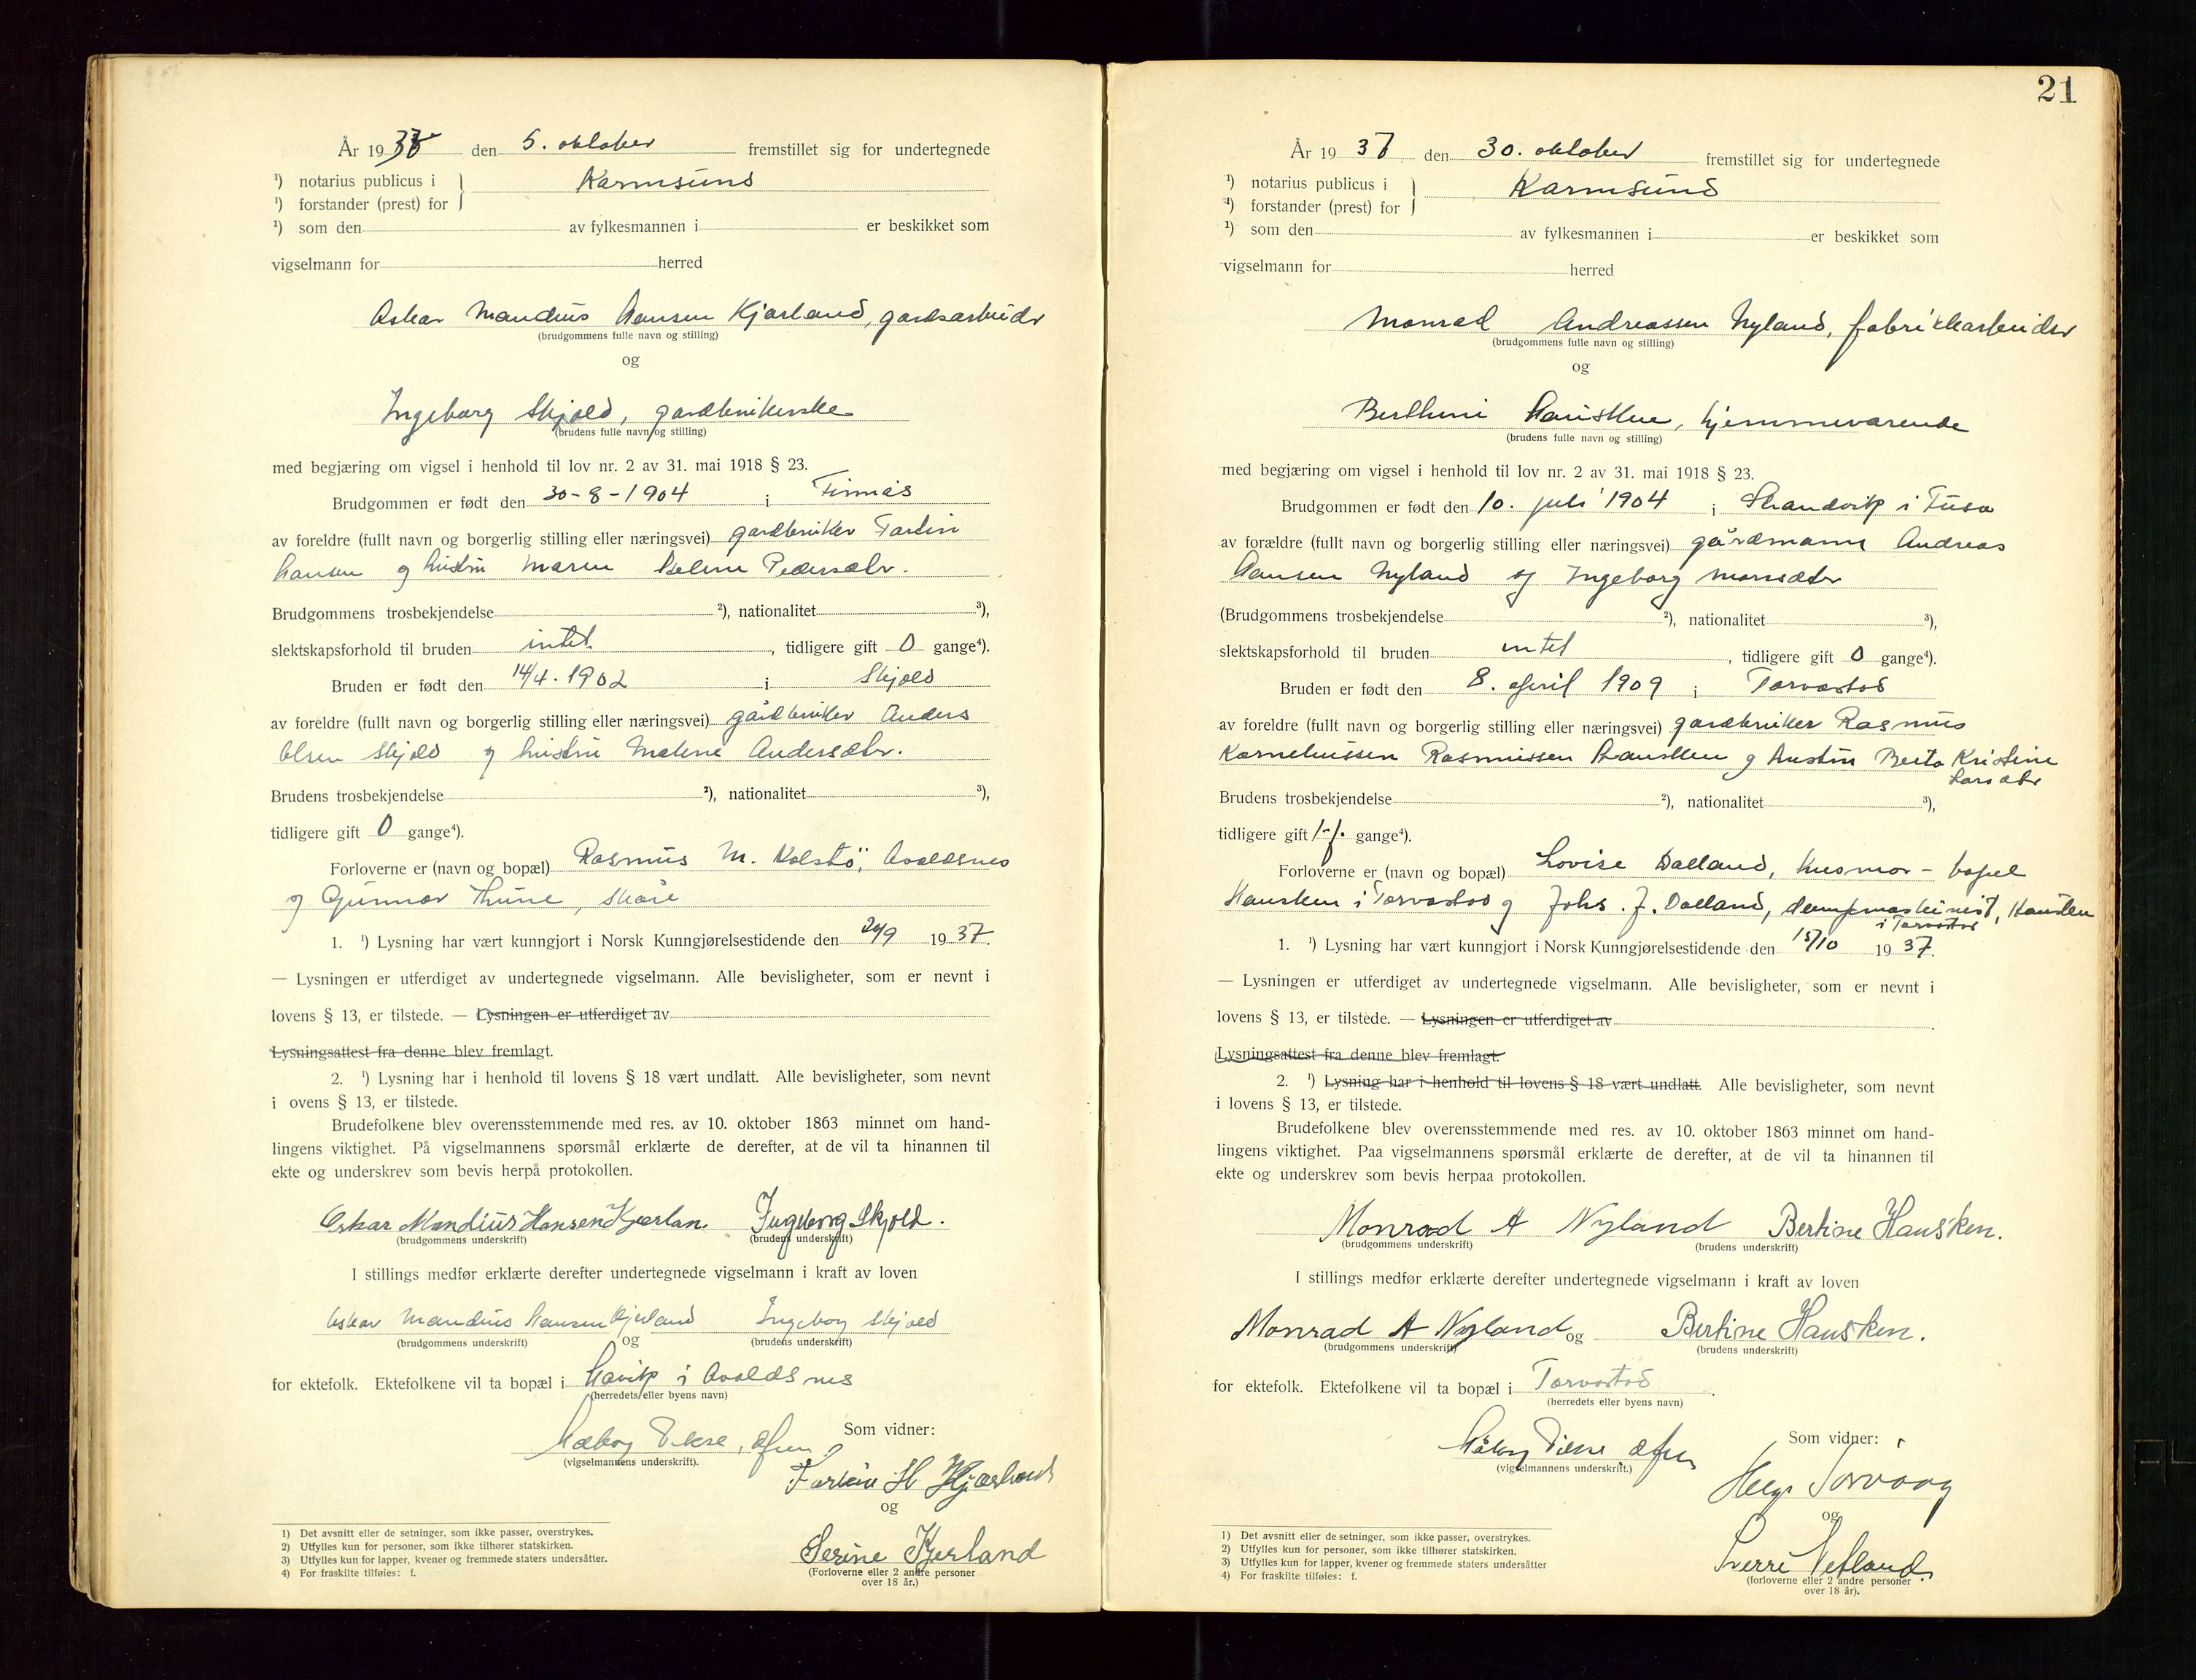 År 1937 den 5. oktober fremstillet sig for undertegnede
¹) notarius publicus i } Karmsund
¹) forstander (prest) for
¹) som den av fylkesmannen i er beskikket som
vigselmann for herred
Oskar Mandius Hansen Kjærland, gardsarbeider
(brudgommens fulle navn og stilling)
og
Ingeborg Skjold, gardbrukerske
(brudens fulle navn og stilling)
med begjæring om vigsel i henhold til lov nr. 2 av 31. mai 1918 § 23.
Brudgommen er født den 30-8-1904 i Finnås
av foreldre (fullt navn og borgerlig stilling eller næringsvei) gardbruker
Hansen og hustru Maren Helene Pedersdtr.
Brudgommens trosbekjendelse ²), nationalitet ³),
slektskapsforhold til bruden intet, tidligere gift 0 gange⁴).
Bruden er født den 14/4. 1902 i Skjold
av foreldre (fullt navn og borgerlig stilling eller næringsvei) gårdbruker Anders
Olsen Skjold og hustru Malene Andersdtr.
Brudens trosbekjendelse ²), nationalitet ³),
tidligere gift 0 gange⁴).
Forloverne er (navn og bopæl) Rasmus M. Kolstø, Avaldsnes
og Gunnar Thune, Skåre
1. ¹) Lysning har vært kunngjort i Norsk Kunngjørelsestidende den 1937.
— Lysningen er utferdiget av undertegnede vigselmann. Alle bevisligheter, som er nevnt i
lovens § 13, er tilstede. — Lysningen er utferdiget av
Lysningsattest fra denne blev fremlagt.
2. ¹) Lysning har i henhold til lovens § 18 vært undlatt. Alle bevisligheter, som nevnt
i ovens § 13, er tilstede.
Brudefolkene blev overensstemmende med res. av 10. oktober 1863 minnet om hand-
lingens viktighet. På vigselmannens spørsmål erklærte de derefter, at de vil ta hinannen til
ekte og underskrev som bevis herpå protokollen.
Oskar Mandius Hansen Kjærlan. Ingeborg Skjold.
(brudgommens underskrift) (brudens underskrift)
I stillings medfør erklærte derefter undertegnede vigselmann i kraft av loven
Oskar Mandius Hansen Kjerland Ingeborg Skjold
(brudgommens underskrift) og (brudens underskrift)
for ektefolk. Ektefolkene vil ta bopæl i Håvik i Avaldsnes
(herredets eller byens navn)
Som vidner:
(vigselmannens underskrift).
H Kjærland
og
Serine Kjerland
(Forloverne eller 2 andre personer
over 18 år.)
1) Det avsnitt eller de setninger, som ikke passer, overstrykes.
2) Utfylles kun for personer, som ikke tilhører statskirken.
3) Utfylles kun for lapper, kvener og fremmede staters undersåtter.
4) For fraskilte tilføies: f.
21
År 1937 den 30. oktober fremstillet sig for undertegnede
¹) notarius publicus i } Karmsund
¹) forstander (prest) for
¹) som den av fylkesmannen i er beskikket som
vigselmann for herred
Monrad Andreassen Nyland, fabrikkarbeider
(brudgommens fulle navn og stilling)
og
Berthine Hausken, hjemmeværende
(brudens fulle navn og stilling)
med begjæring om vigsel i henhold til lov nr. 2 av 31. mai 1918 § 23.
Brudgommen er født den 10. juli 1904 i Strandvik i Fusa
av forældre (fullt navn og borgerlig stilling eller næringsvei) gårdmann Andreas
Hansen Nyland og Ingeborg Monsdtr
(Brudgommens trosbekjendelse ²), nationalitet ³),
slektskapsforhold til bruden intet, tidligere gift 0 gange⁴).
Bruden er født den 8. april 1909 i Torvastad
av foreldre (fullt navn og borgerlig stilling eller næringsvei) gardbruker Rasmus
Korneliussen Rasmussen Hausken og hustru Berta Kristine
Larsdtr
Brudens trosbekjendelse ²), nationalitet ³),
tidligere gift 1-f. gange⁴).
Forloverne er (navn og bopæl) Lovise Dalland, husmor - bopæl
Hausken i Torvastad og Johs. J. Dalland, dampmaskinist, Hausken
i Torvastad
1. ¹) Lysning har vært kunngjort i Norsk Kunngjørelsestidende den 15/10 1937.
— Lysningen er utferdiget av undertegnede vigselmann. Alle bevisligheter, som er nevnt i
lovens § 13, er tilstede. — Lysningen er utferdiget av
Lysningsattest fra denne blev fremlagt.
2. ¹) Lysning har i henhold til lovens § 18 vært undlatt. Alle bevisligheter, som nevnt
i lovens § 13, er tilstede.
Brudefolkene blev overensstemmende med res. av 10. oktober 1863 minnet om hand-
lingens viktighet. Paa vigselmannens spørsmål erklærte de derefter, at de vil ta hinannen til
ekte og underskrev som bevis herpaa protokollen.
Monrad A Nyland Bertine Hausken.
(brudgommens underskrift) (brudens underskrift)
I stillings medfør erklærte derefter undertegnede vigselmann i kraft av loven
Monrad A Nyland og Bertine Hausken.
(brudgommens underskrift) (brudens underskrift)
for ektefolk. Ektefolkene vil ta bopæl i Torvastad.
(herredets eller byens navn)
Som vidner:
(vigselmannens underskrift.)
Helge
og
Sverre
(forloverne eller 2 andre personer
over 18 år).
1) Det avsnitt eller de setninger, som ikke passer, overstrykes.
2) Utfylles kun for personer, som ikke tilhører statskirken.
3) Utfylles kun for lapper, kvener og fremmede staters undersåtter
4) For fraskilte tilføies: f.